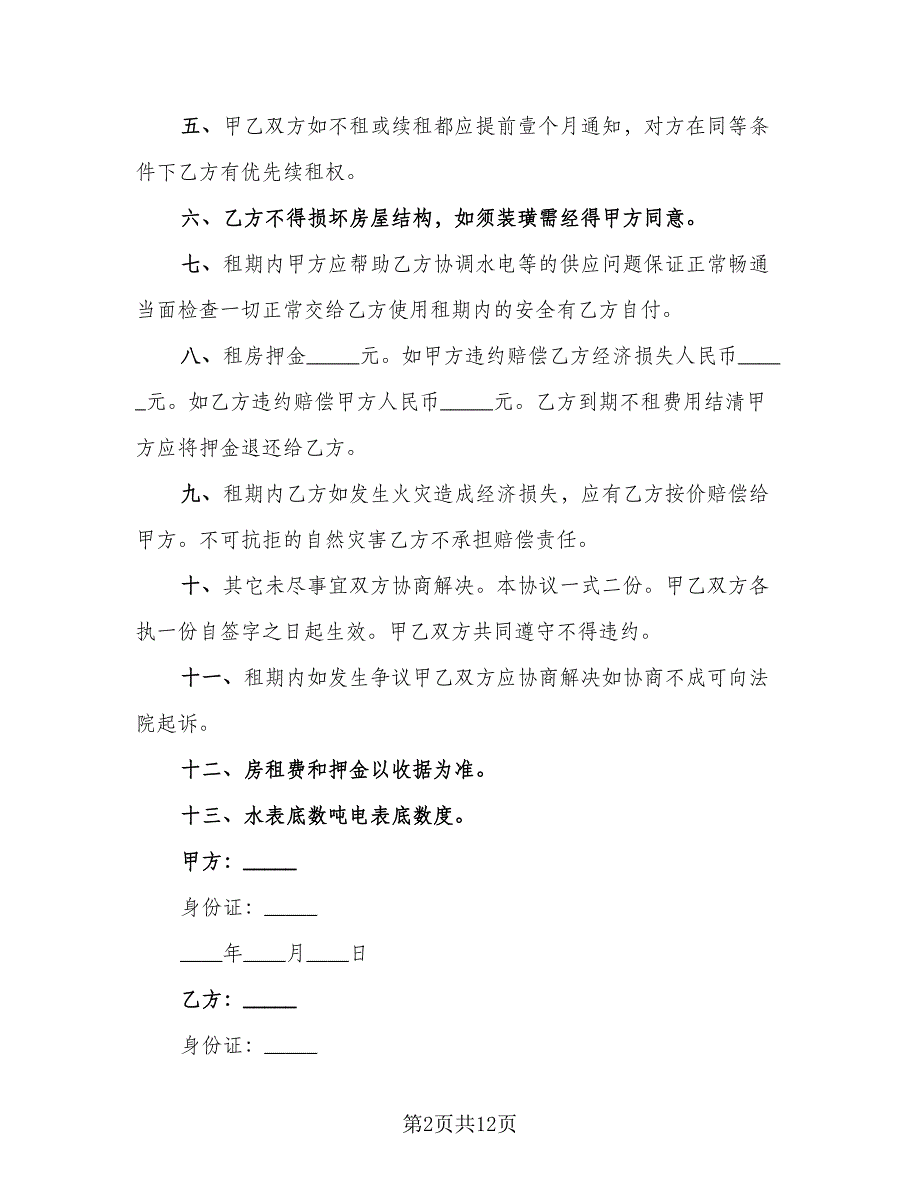 五、甲乙双方如不租或续租都应提前壹个月通知，对方在同等条
件下乙方有优先续租权。
六、乙方不得损坏房屋结构，如须装璜需经得甲方同意。
七、租期内甲方应帮助乙方协调水电等的供应问题保证正常畅通
当面检查一切正常交给乙方使用租期内的安全有乙方自付。
八、租房押金_____元。如甲方违约赔偿乙方经济损失人民币____
_元。如乙方违约赔偿甲方人民币_____元。乙方到期不租费用结清甲
方应将押金退还给乙方。
九、租期内乙方如发生火灾造成经济损失，应有乙方按价赔偿给
甲方。不可抗拒的自然灾害乙方不承担赔偿责任。
十、其它未尽事宜双方协商解决。本协议一式二份。甲乙双方各
执一份自签字之日起生效。甲乙双方共同遵守不得违约。
十一、租期内如发生争议甲乙双方应协商解决如协商不成可向法
院起诉。
十二、房租费和押金以收据为准。
十三、水表底数吨电表底数度。
甲方：_____
身份证：_____
____年____月____日
乙方：_____
身份证：_____
第2页共12页